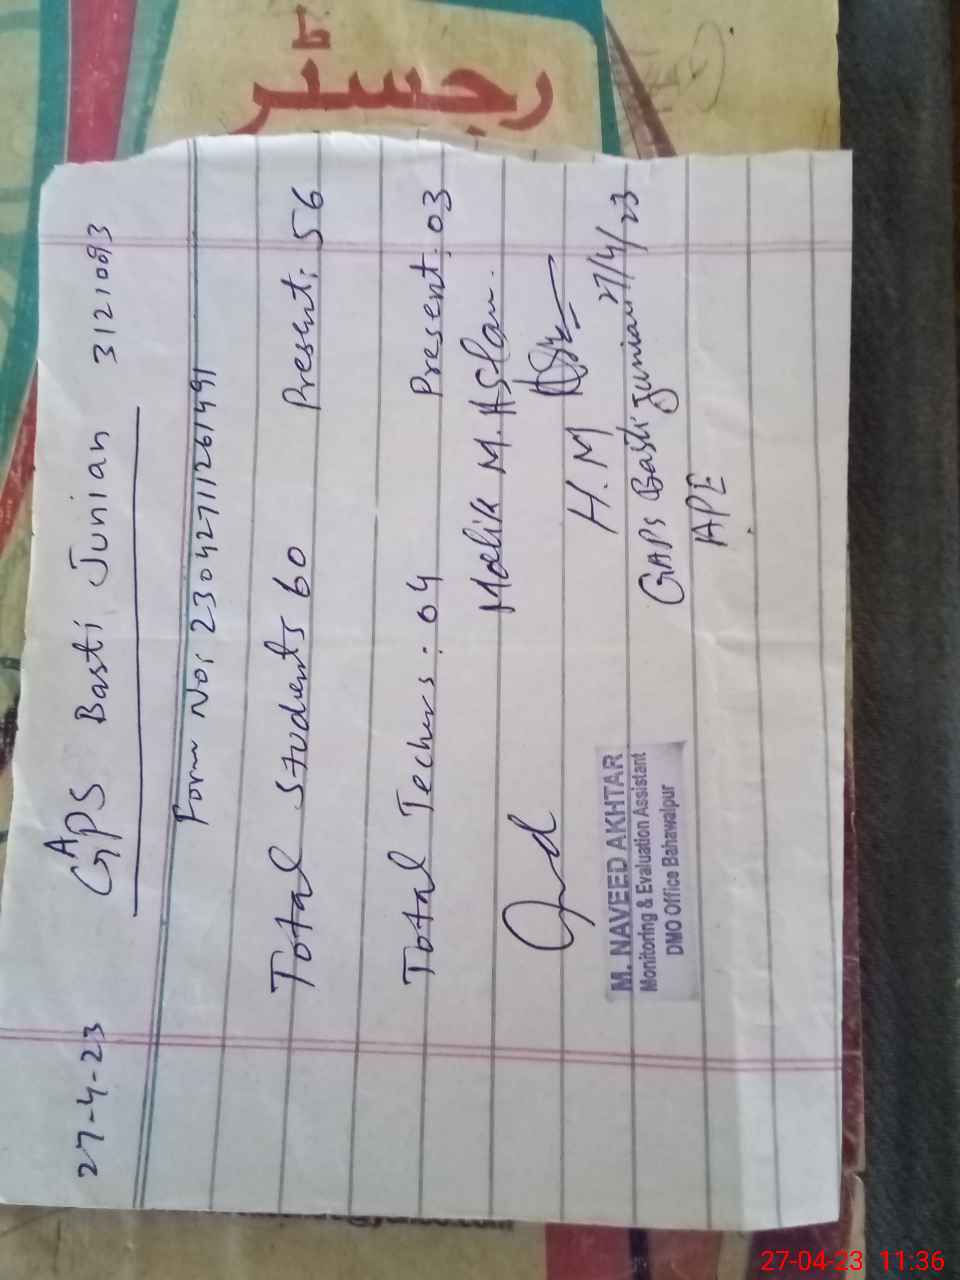 رجسٹر
27-4-23 GAPS Basti Junian 3121093
Form No: 23042711261491
Total Students 60 Present: 56
Total Techers: 04 Present: 03
Malik M. Aslam.
H.M 27/4/23
GAPS Basti Junian
APE
M. NAVEED AKHTAR
Monitoring & Evaluation Assistant
DMO Office Bahawalpur
27-04-23 11:36